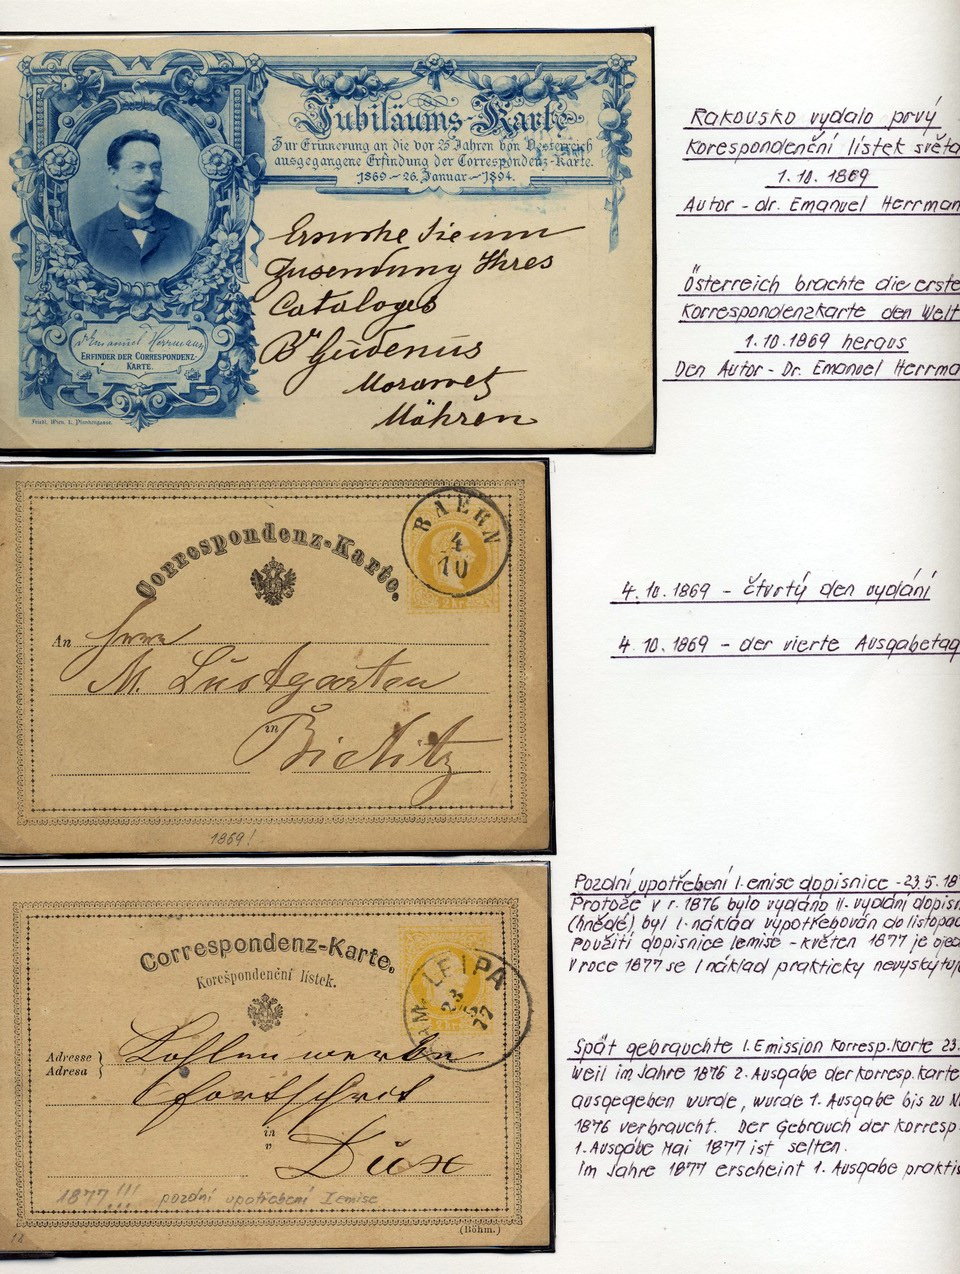 Jubiläums-Karte
Zur Erinnerung an die vor 25 Jahren von Oesterreich
ausgegangene Erfindung der Correspondenz-Karte.
1869 – 26. Januar – 1894.
Ersuche Sie um
Zusendung Ihres
Cataloges
Gudenus
Morawetz
Mähren
Dr Emanuel Herrmann
ERFINDER DER CORRESPONDENZ-
KARTE.
Rakousko vydalo prvý
korespondenční lístek světa
1.10.1869
Autor - dr. Emanuel Herrman
Österreich brachte die erste
Korrespondenzkarte den Welt
1.10.1869 heraus
Den Autor - Dr. Emanuel Herrma
Correspondenz-Karte.
BAERN
4
10
2 Kr.
An Herrn
M. Lustgarten
in Bielitz
1869!
4.10.1869 - čtvrtý den vydání
4.10.1869 - der vierte Ausgabetag
Correspondenz-Karte.
Korešpondenční lístek.
LEIPA
23
5
77
Adresse
Adresa
in
v
Dux
1877!!! pozdní upotřebení I emise
(Böhm.)
Pozdní upotřebení I. emise dopisnice - 23.5.18
Protože v r. 1876 bylo vydáno II. vydání dopisn
(hnědé) byl I. náklad vypotřebován do listopad
Použití dopisnice I emise - květen 1877 je ojed
V roce 1877 se I náklad prakticky nevyskytuj
Spät gebrauchte I. Emission Korresp. Karte 23.
Weil im Jahre 1876 2. Ausgabe der Korresp. Karte
ausgegeben wurde, wurde 1. Ausgabe bis zu N
1876 verbraucht. Der Gebrauch der Korresp
1. Ausgabe Mai 1877 ist selten.
Im Jahre 1877 erscheint 1. Ausgabe praktis